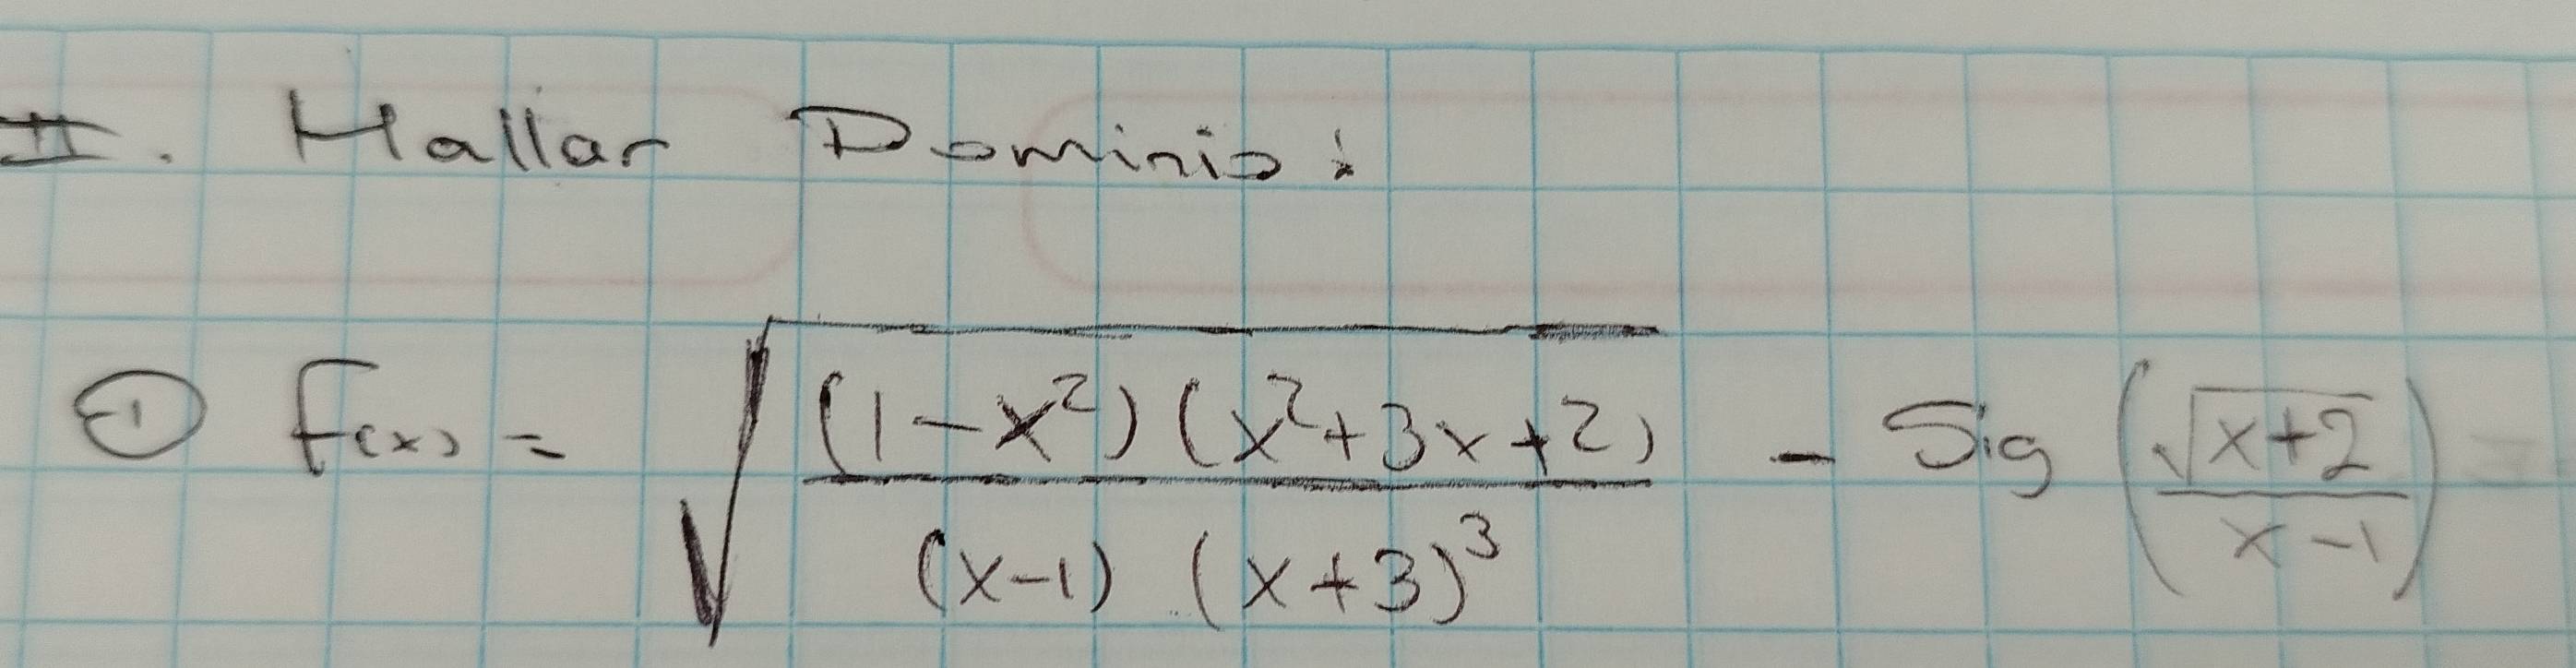 II. Hallar Dominio:
① F(x) = √((1-x²)(x²+3x+2) / (x-1)(x+3)³) - Sig(√(x+2) / (x-1)) =